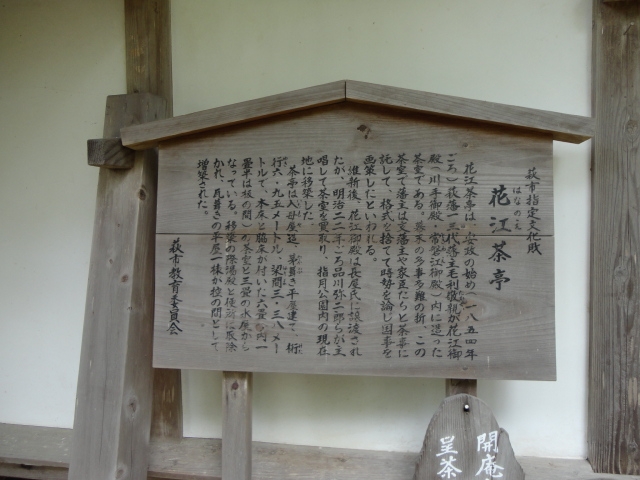 萩市指定文化財
はなのえ
花江茶亭
花江茶亭は、安政の始め(一八五四年
ごろ)萩藩一三代藩主毛利敬親が花江御
殿(川手御殿・常盤江御殿)内に造った
茶室である。幕末の多事多難の折、この
茶室で藩主は支藩主や家臣たちと茶事に
託して、格式を捨てて時勢を論じ国事を
画策したといわれる。
維新後、花江御殿は長屋氏に譲渡され
たが、明治二二年ごろ品川弥二郎らが主
唱して茶室を買取り、指月公園内の現在
地に移築した。
茶亭は入母屋造、茅葺き平屋建て、桁
行六・九五メートル、梁間三・三八メー
トルで、本床と脇床が付いた六畳(内一
畳半は板の間)の茶室と三畳の水屋から
なっている。移築の際湯殿と便所は取除
かれ、瓦葺きの平屋一棟が控の間として
増築された。
萩市教育委員会
開庵
呈茶